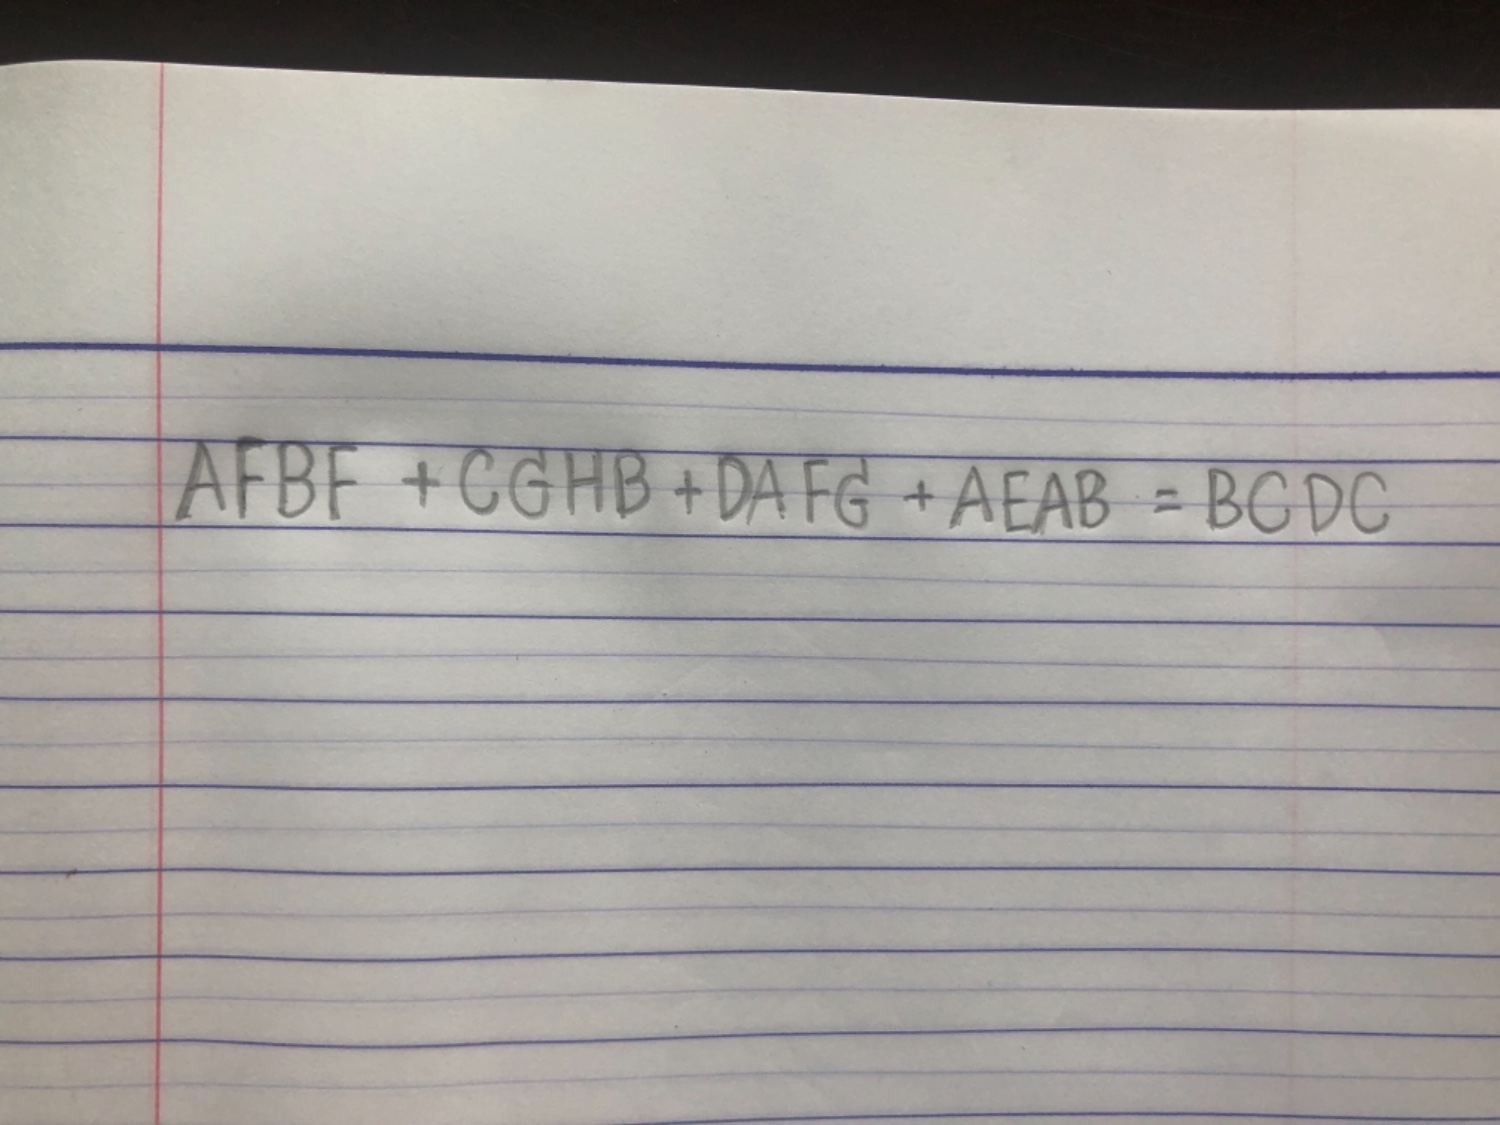 AFBF + CGHB + DAFG + AEAB = BCDC